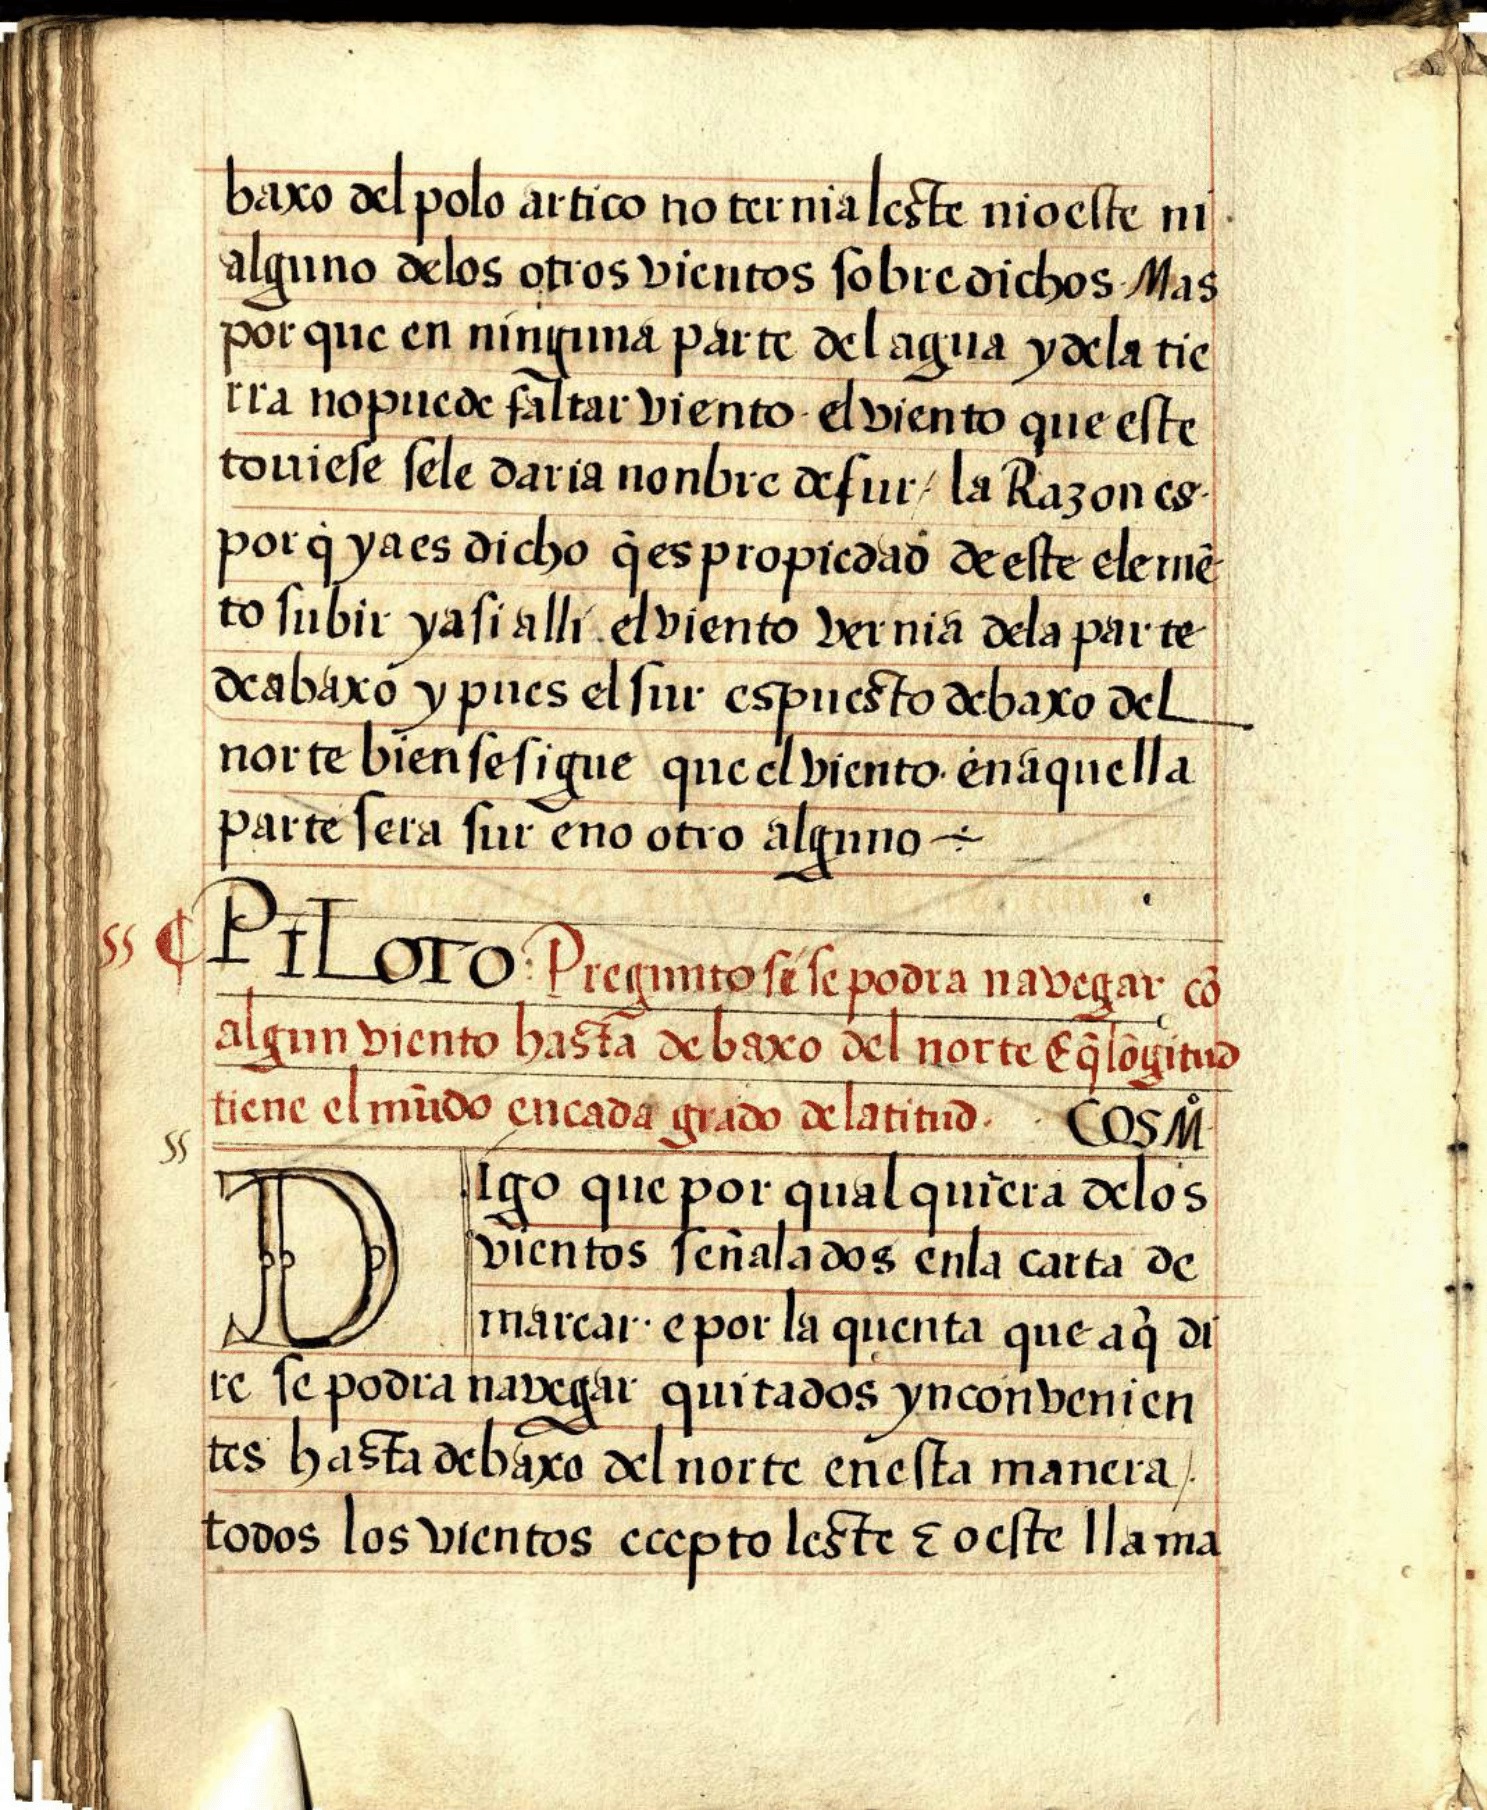 baxo del polo artico no ternia leste ni oeste ni
alguno delos otros vientos sobre dichos. Mas
por que en ninguna parte del agua y dela tie
rra no puede faltar viento. el viento que este
toviese sele daria nonbre de sur / la Razon es.
por q̃ ya es dicho q̃ es propiedad de este elemẽ
to subir y asi alli. el viento vernia dela parte
de abaxo y pues el sur es puesto debaxo del
norte bien se sigue que el viento. en aquella
parte sera sur e no otro alguno ÷
ss ¶ PiLOTO: Pregunto si se podra navegar cõ
algun viento hasta debaxo del norte E q̃ lõgitud
tiene el mũdo en cada grado de latitud. COSMº
ss
DIgo que por qual quiera delos
vientos señalados enla carta de
marear. e por la quenta que aq̃ di
re se podra navegar quitados ynconvenien
tes hasta debaxo del norte en esta manera /.
todos los vientos ecepto leste ⁊ oeste llama